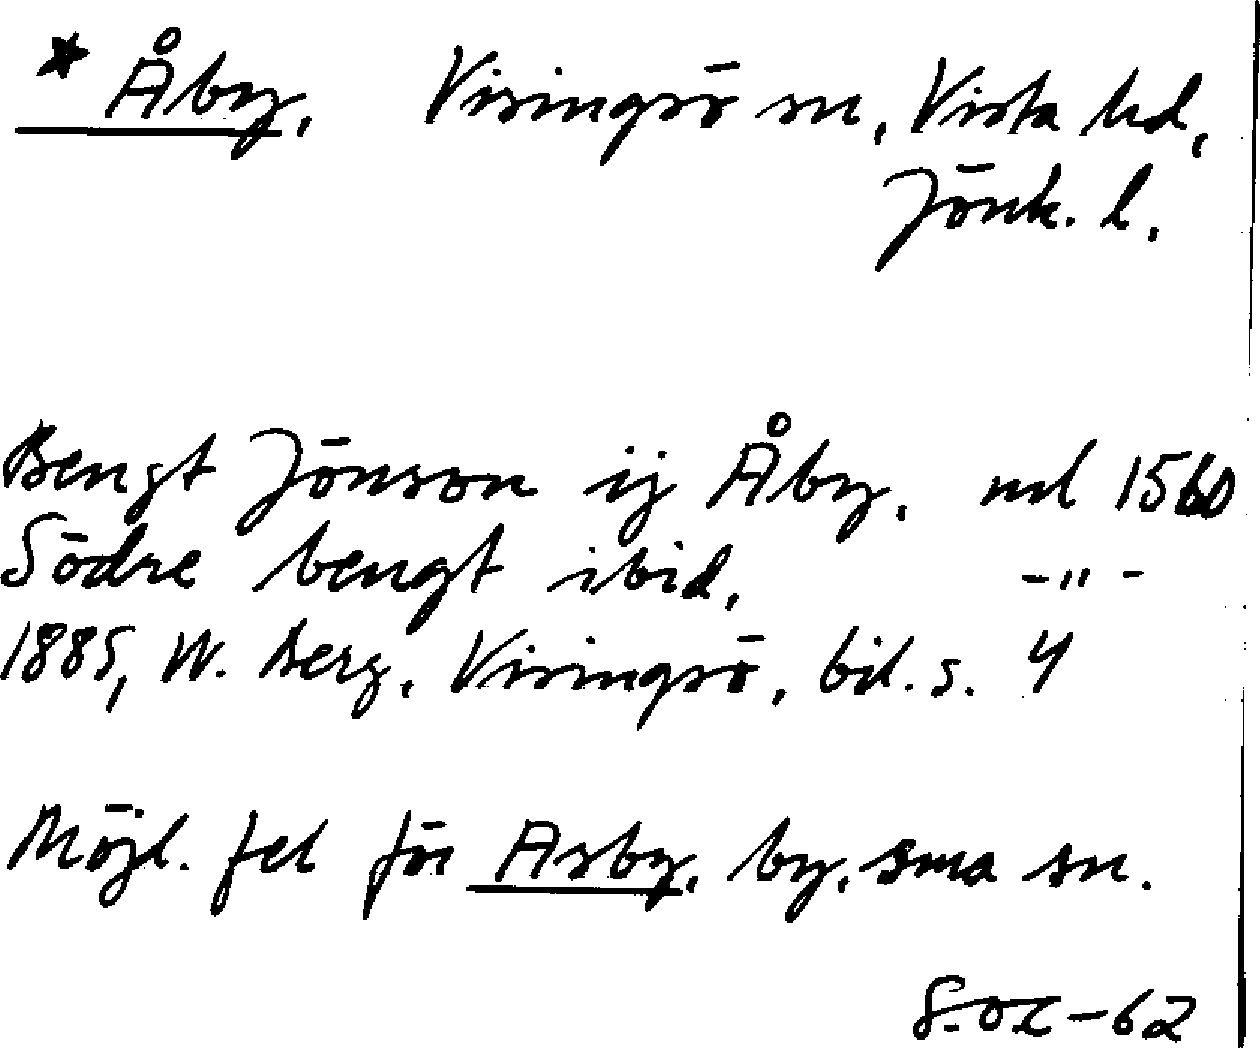 * Åby, Visingsö sn, Vista hd,
Jönk. l.
Bengt Jönson ij Åby, ml 1560
Södre bengt ibid, -"-
1885, W. Berg, Visingsö, bil. s. 4
Möjl. fel för Asby, by, sma sn.
-62